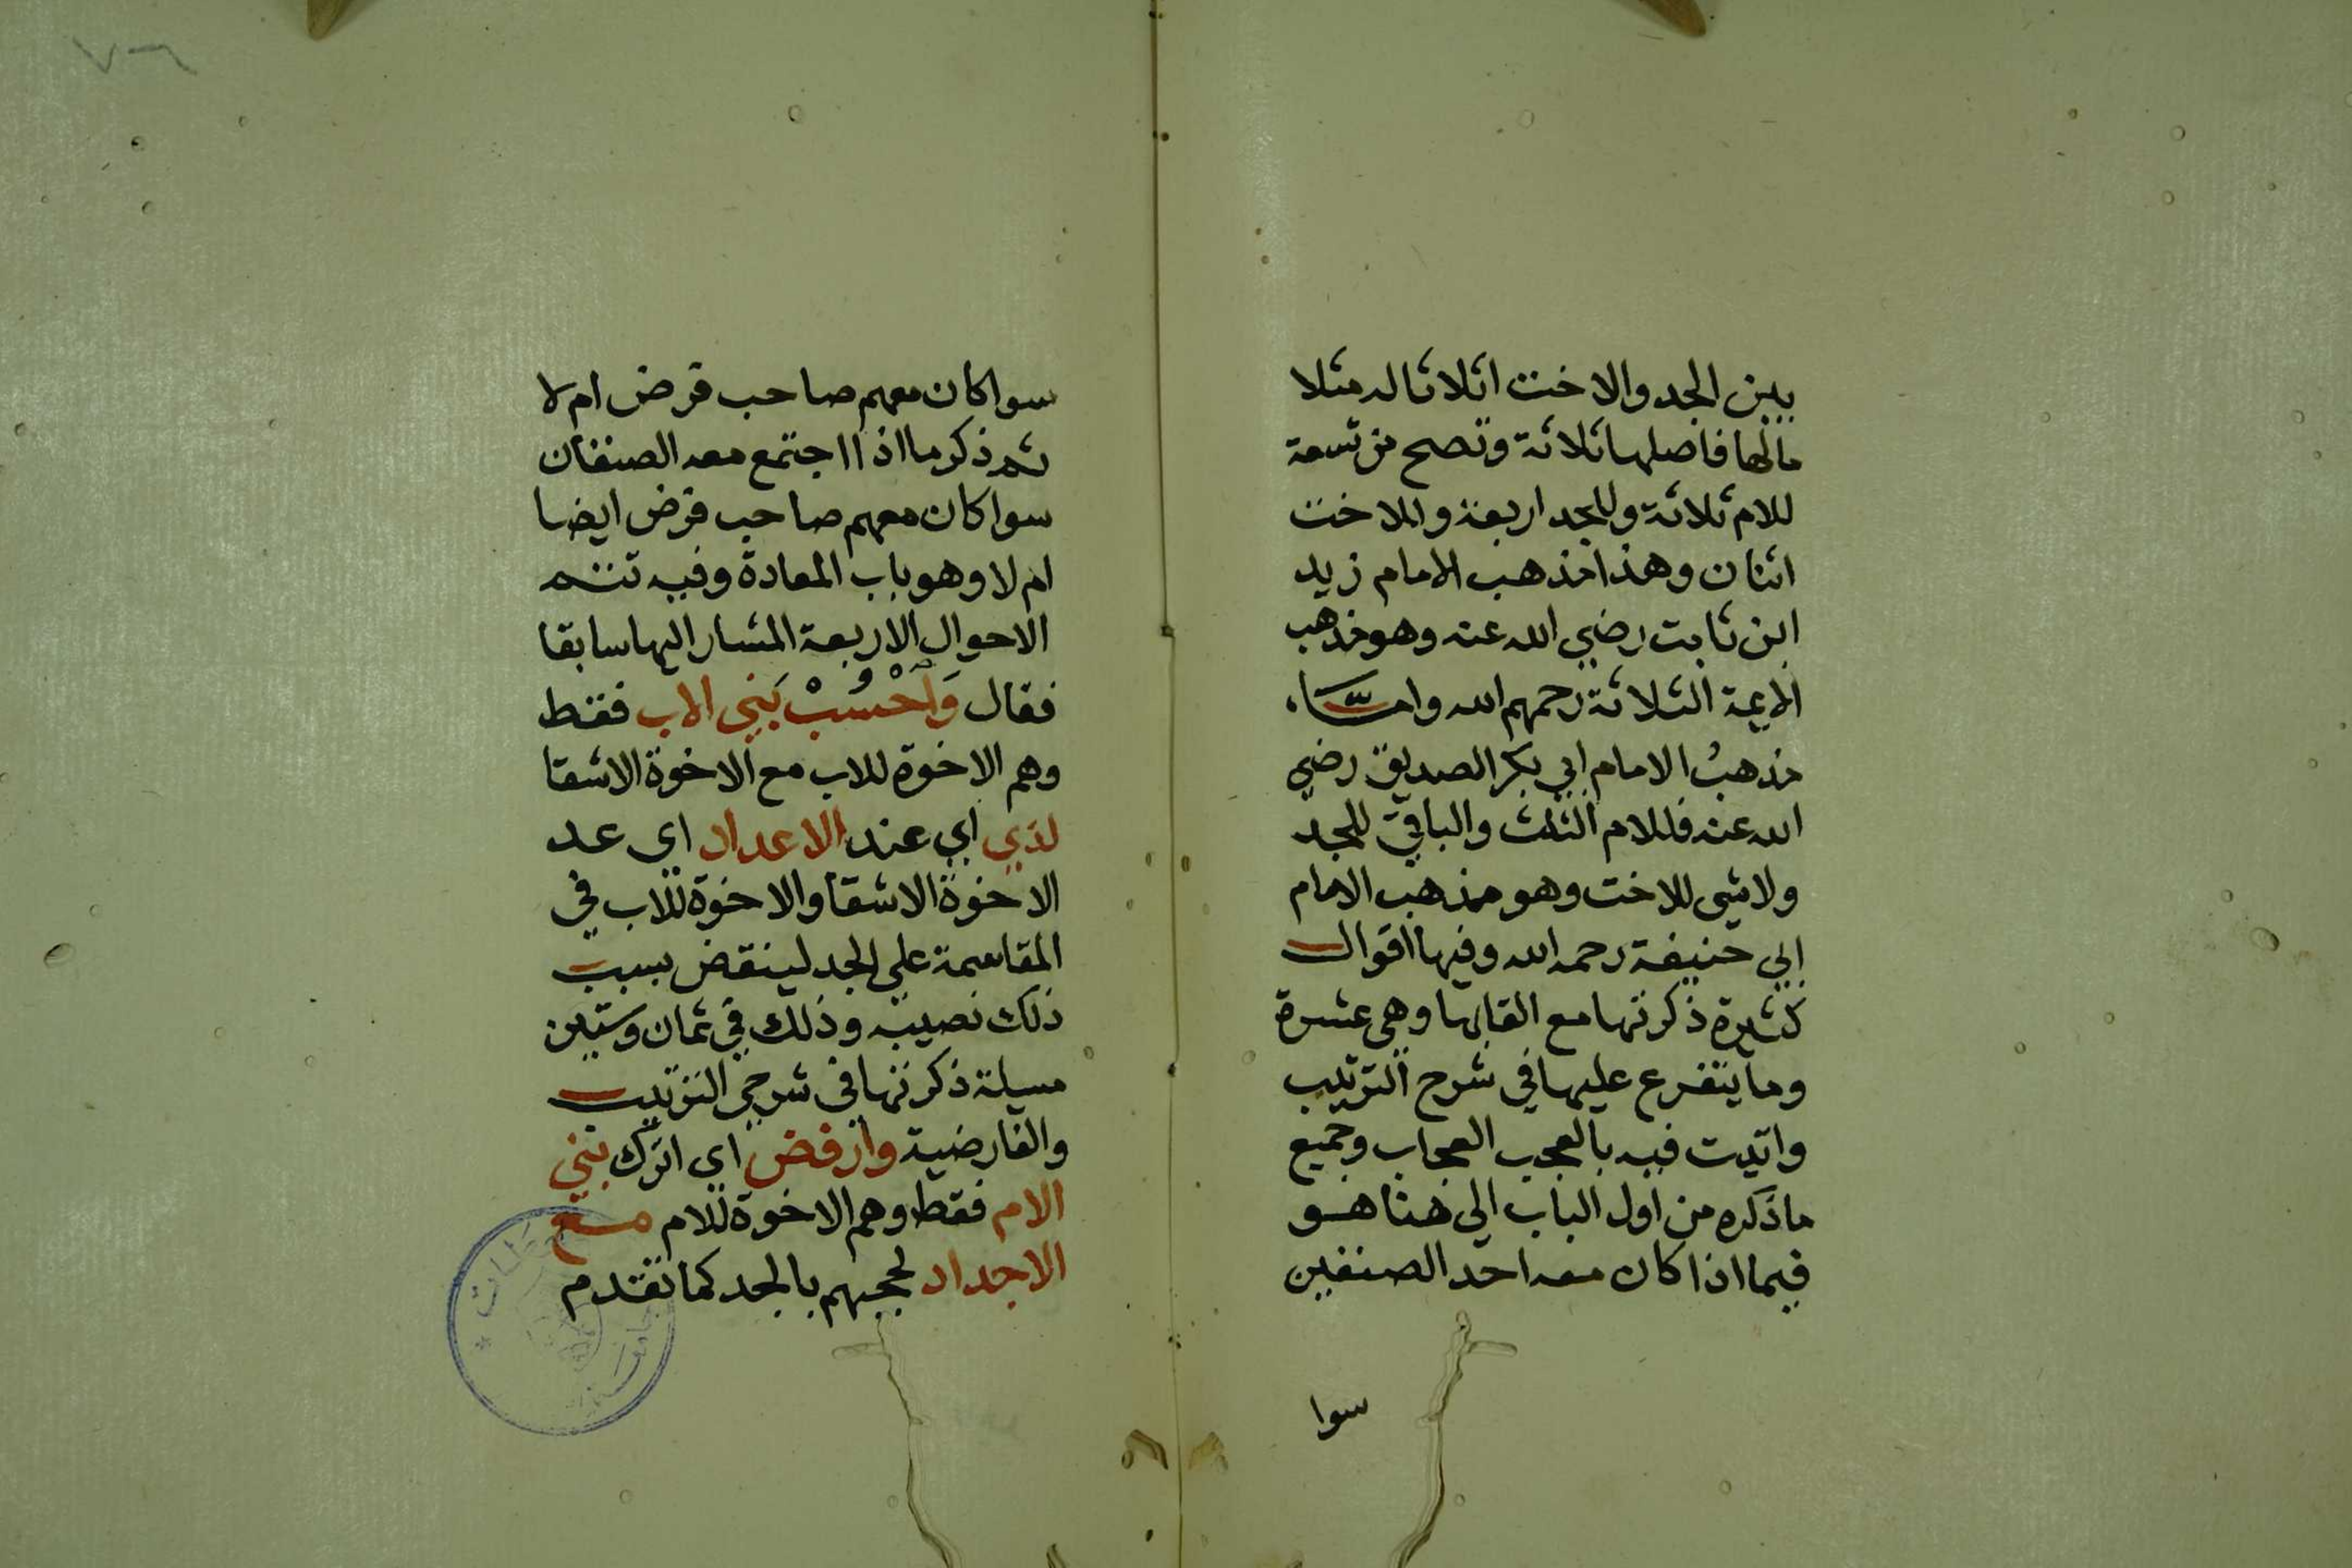 بين الجد والاخت اثلاثا له مثلا
مالها فاصلها ثلاثة وتصح من تسعة
للام ثلاثة وللجد اربعة وللاخت
اثنان وهذا مذهب الامام زيد
ابن ثابت رضي الله عنه وهو مذهب
الايمة الثلاثة رحمهم الله واما
مذهبُ الامام ابي بكر الصديق رضي
الله عنه فللام الثلث والباقي للجد
ولاشى للاخت وهو مذهب الامام
ابي حنيفة رحمه الله وفيها اقوال
كثيرة ذكرتها مع القابها وهي عشرة
وما يتفرع عليها في شرح الترتيب
واتيت فيه بالعجب العجاب وجميع
ماذكره من اول الباب الى هنا هو
فيما اذا كان معه احد الصنفين
سوا
سوا كان معهم صاحب فرض ام لا
ثم ذكر ما اذا اجتمع معه الصنفان
سوا كان معهم صاحب فرض ايضا
ام لا وهو باب المعادة وفيه تتمة
الاحوال الاربعة المشار اليها سابقا
فقال وَاحْسُبْ بَنِي الاب فقط
وهم الاخوة للاب مع الاخوة الاشقا
لدي اي عند الاعداد اي عد
الاخوة الاشقا والاخوة للاب في
المقاسمة على الجد لينقض بسبب
ذلك نصيبه وذلك في ثمان وستين
مسيلة ذكرتها في شرحي الترتيب
والفارضية وارفض اي اترك بني
الام فقط وهم الاخوة للام مع
الاجداد لحجبهم بالجد كما تقدم